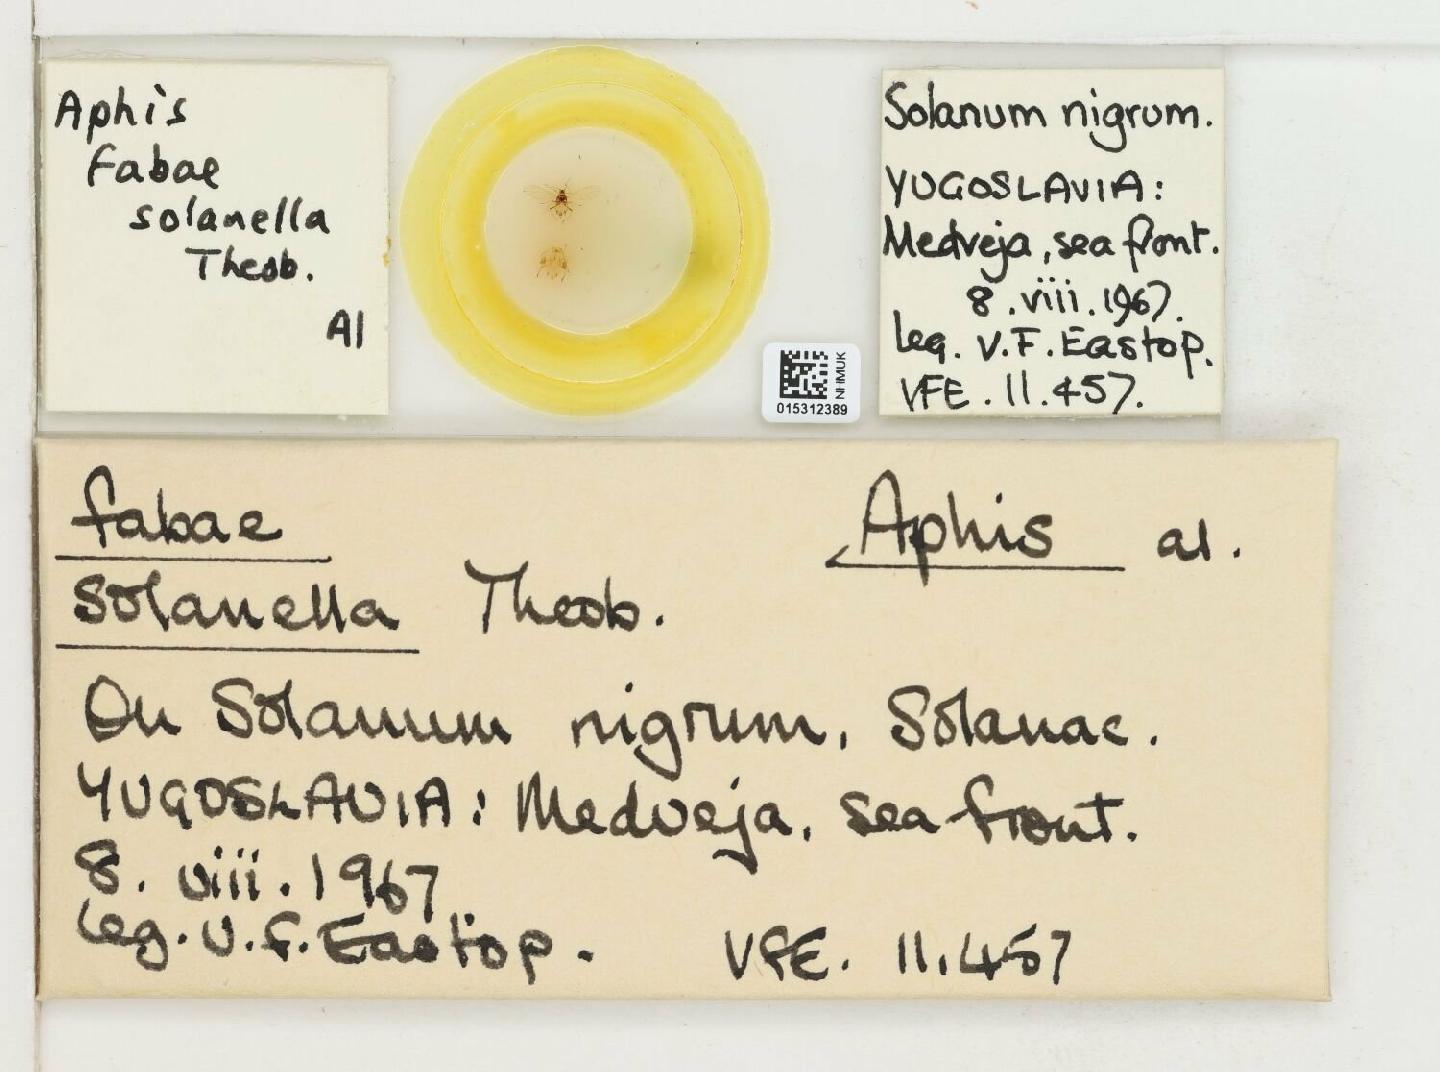 Aphis
fabae
solanella
Theob.
Al
NHMUK
015312389
Solanum nigrum.
YUGOSLAVIA:
Medveja, sea front.
8.viii.1967.
leg. V.F. Eastop.
VFE. 11.457.
fabae
Aphis al.
solanella Theob.
On Solanum nigrum, Solanac.
YUGOSLAVIA: Medveja, sea front.
8. viii. 1967
leg. V. F. Eastop.
VFE. 11.457